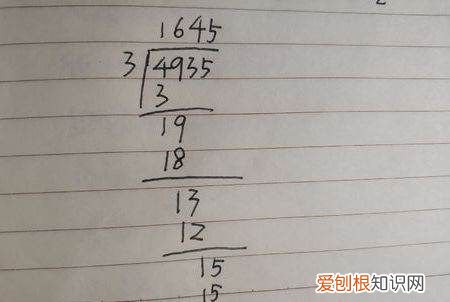 1645
3 4935
3
19
18
13
12
15
15
爱刨根知识网